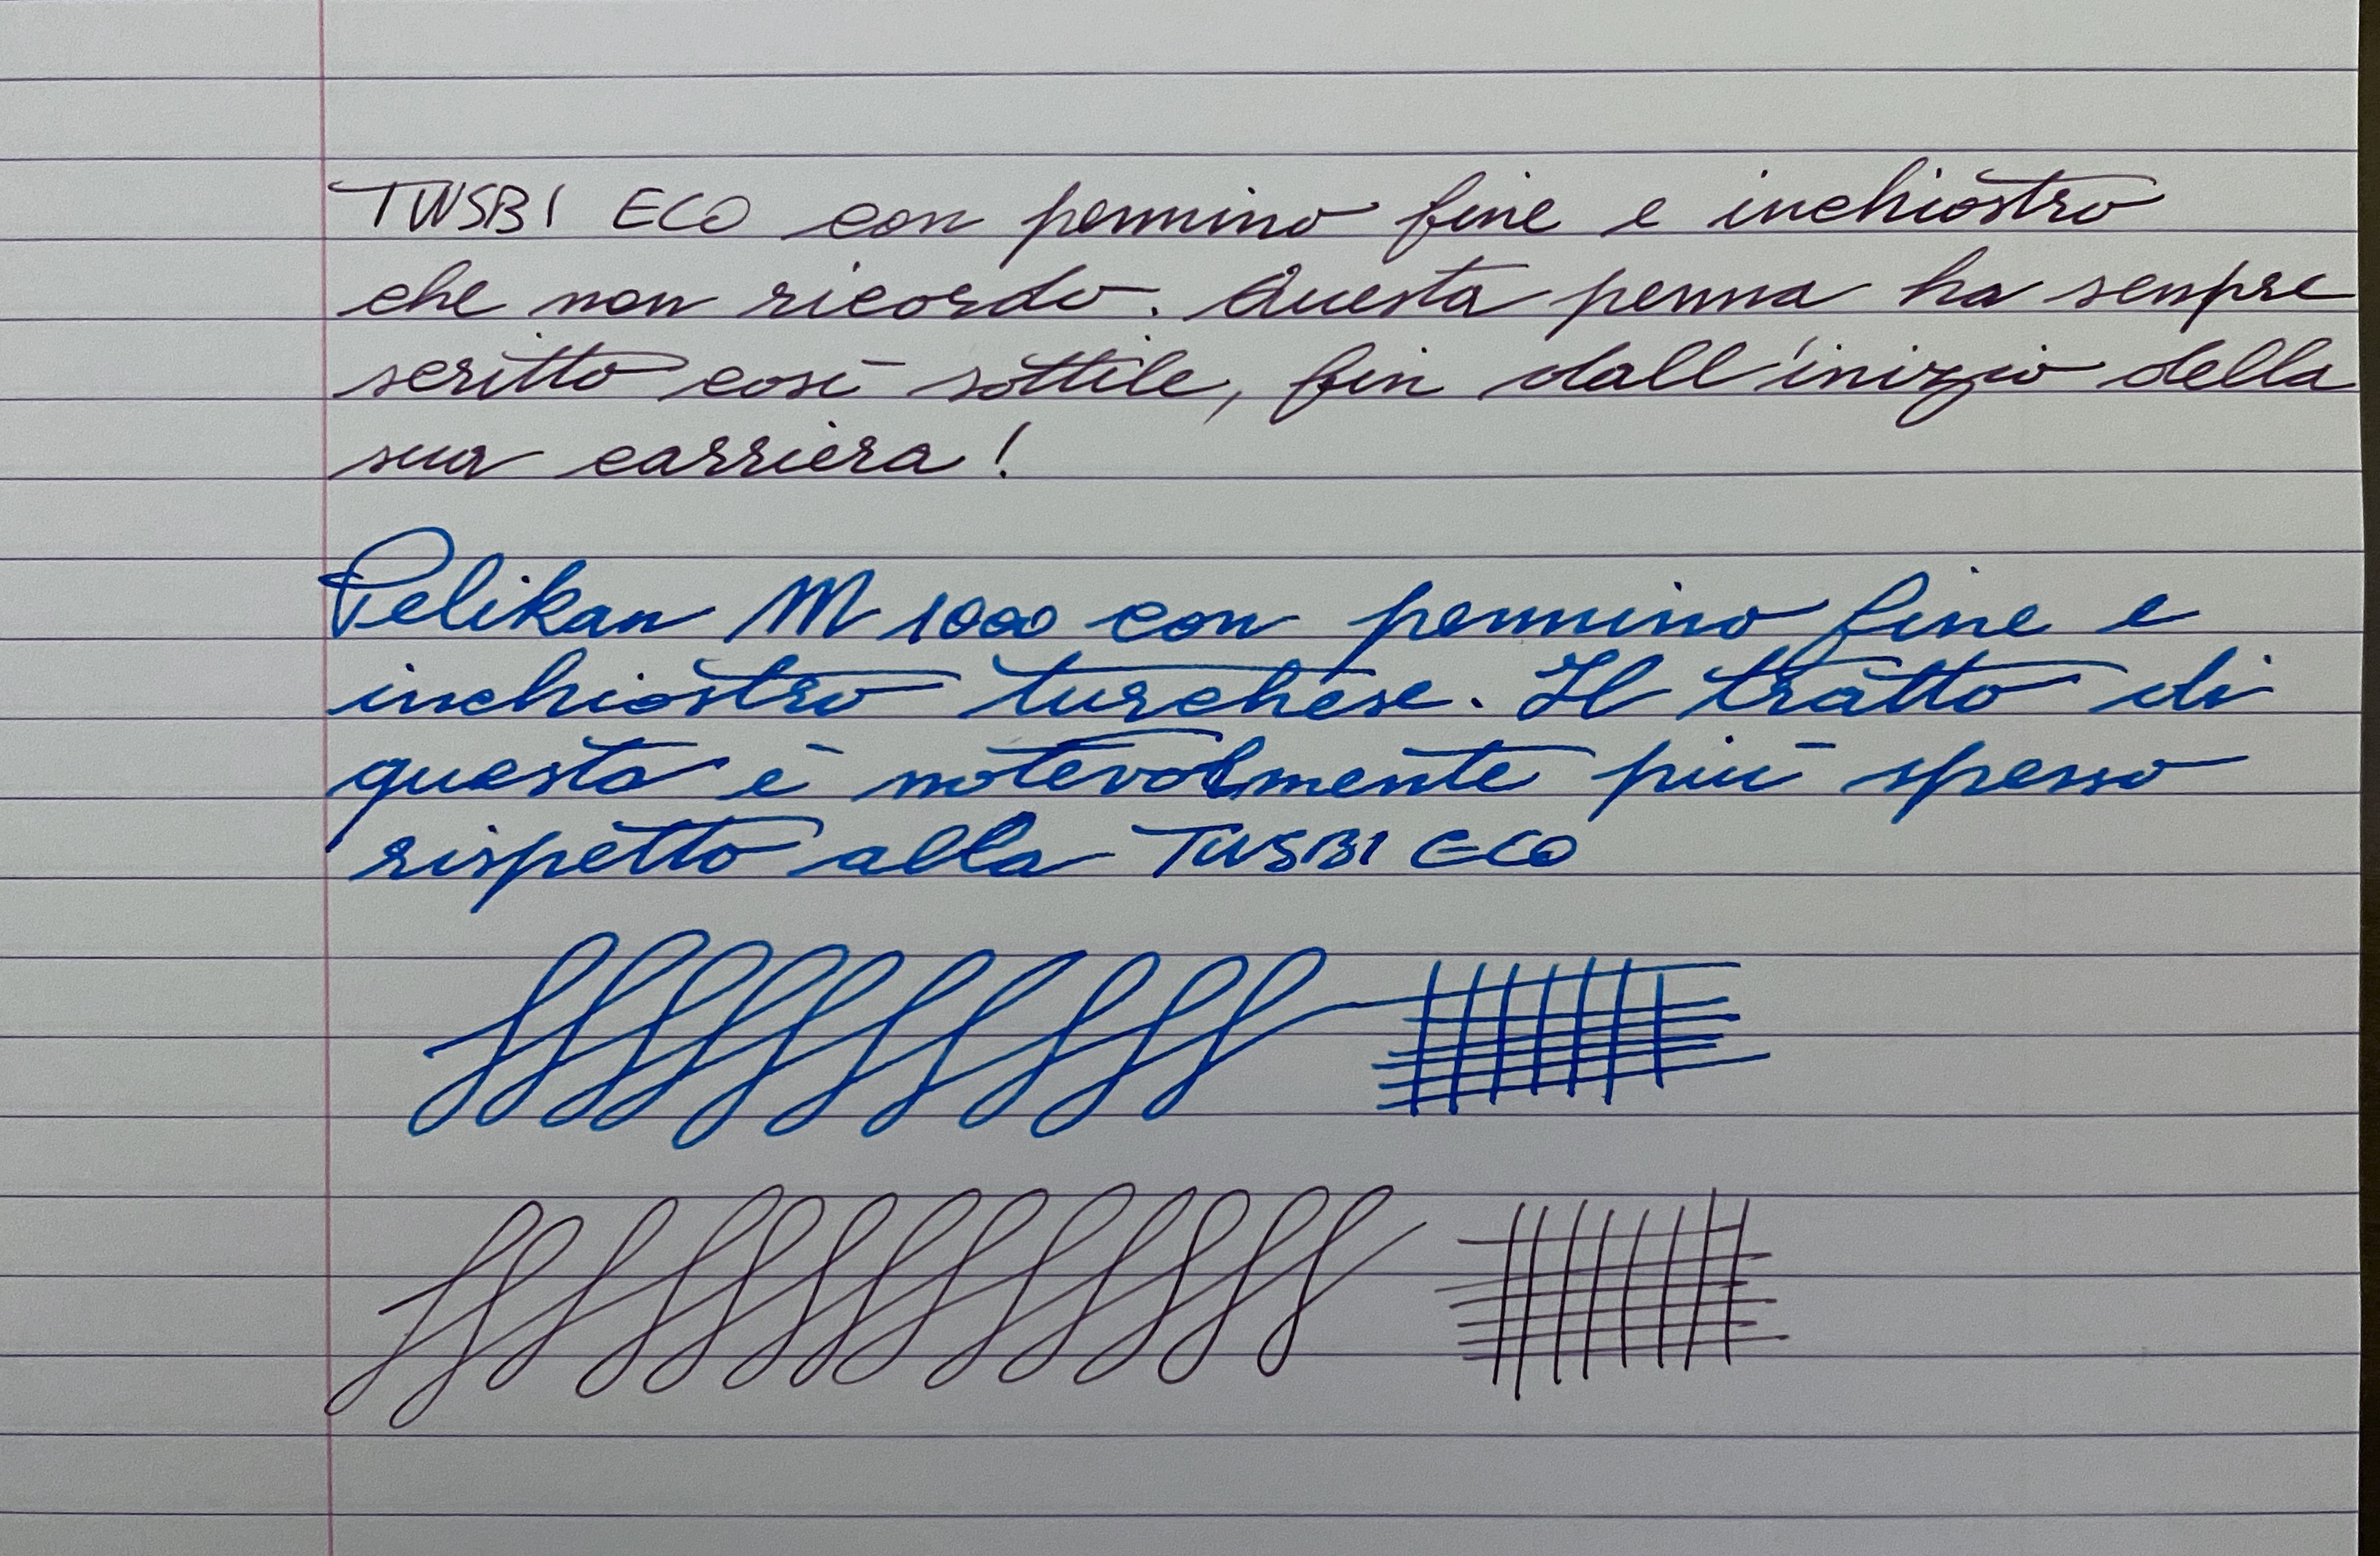 TWSBI ECO con pennino fine e inchiostro
che non ricordo. Questa penna ha sempre
scritto così sottile, fin dall'inizio della
sua carriera!
Pelikan M 1000 con pennino fine e
inchiostro turchese. Il tratto di
questa è notevolmente più spesso
rispetto alla TWSBI ECO